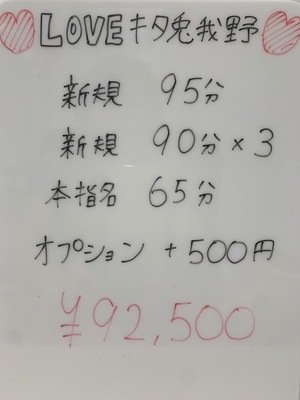 LOVEキタ兎我野
新規 95分
新規 90分×3
本指名 65分
オプション +500円
¥92,500